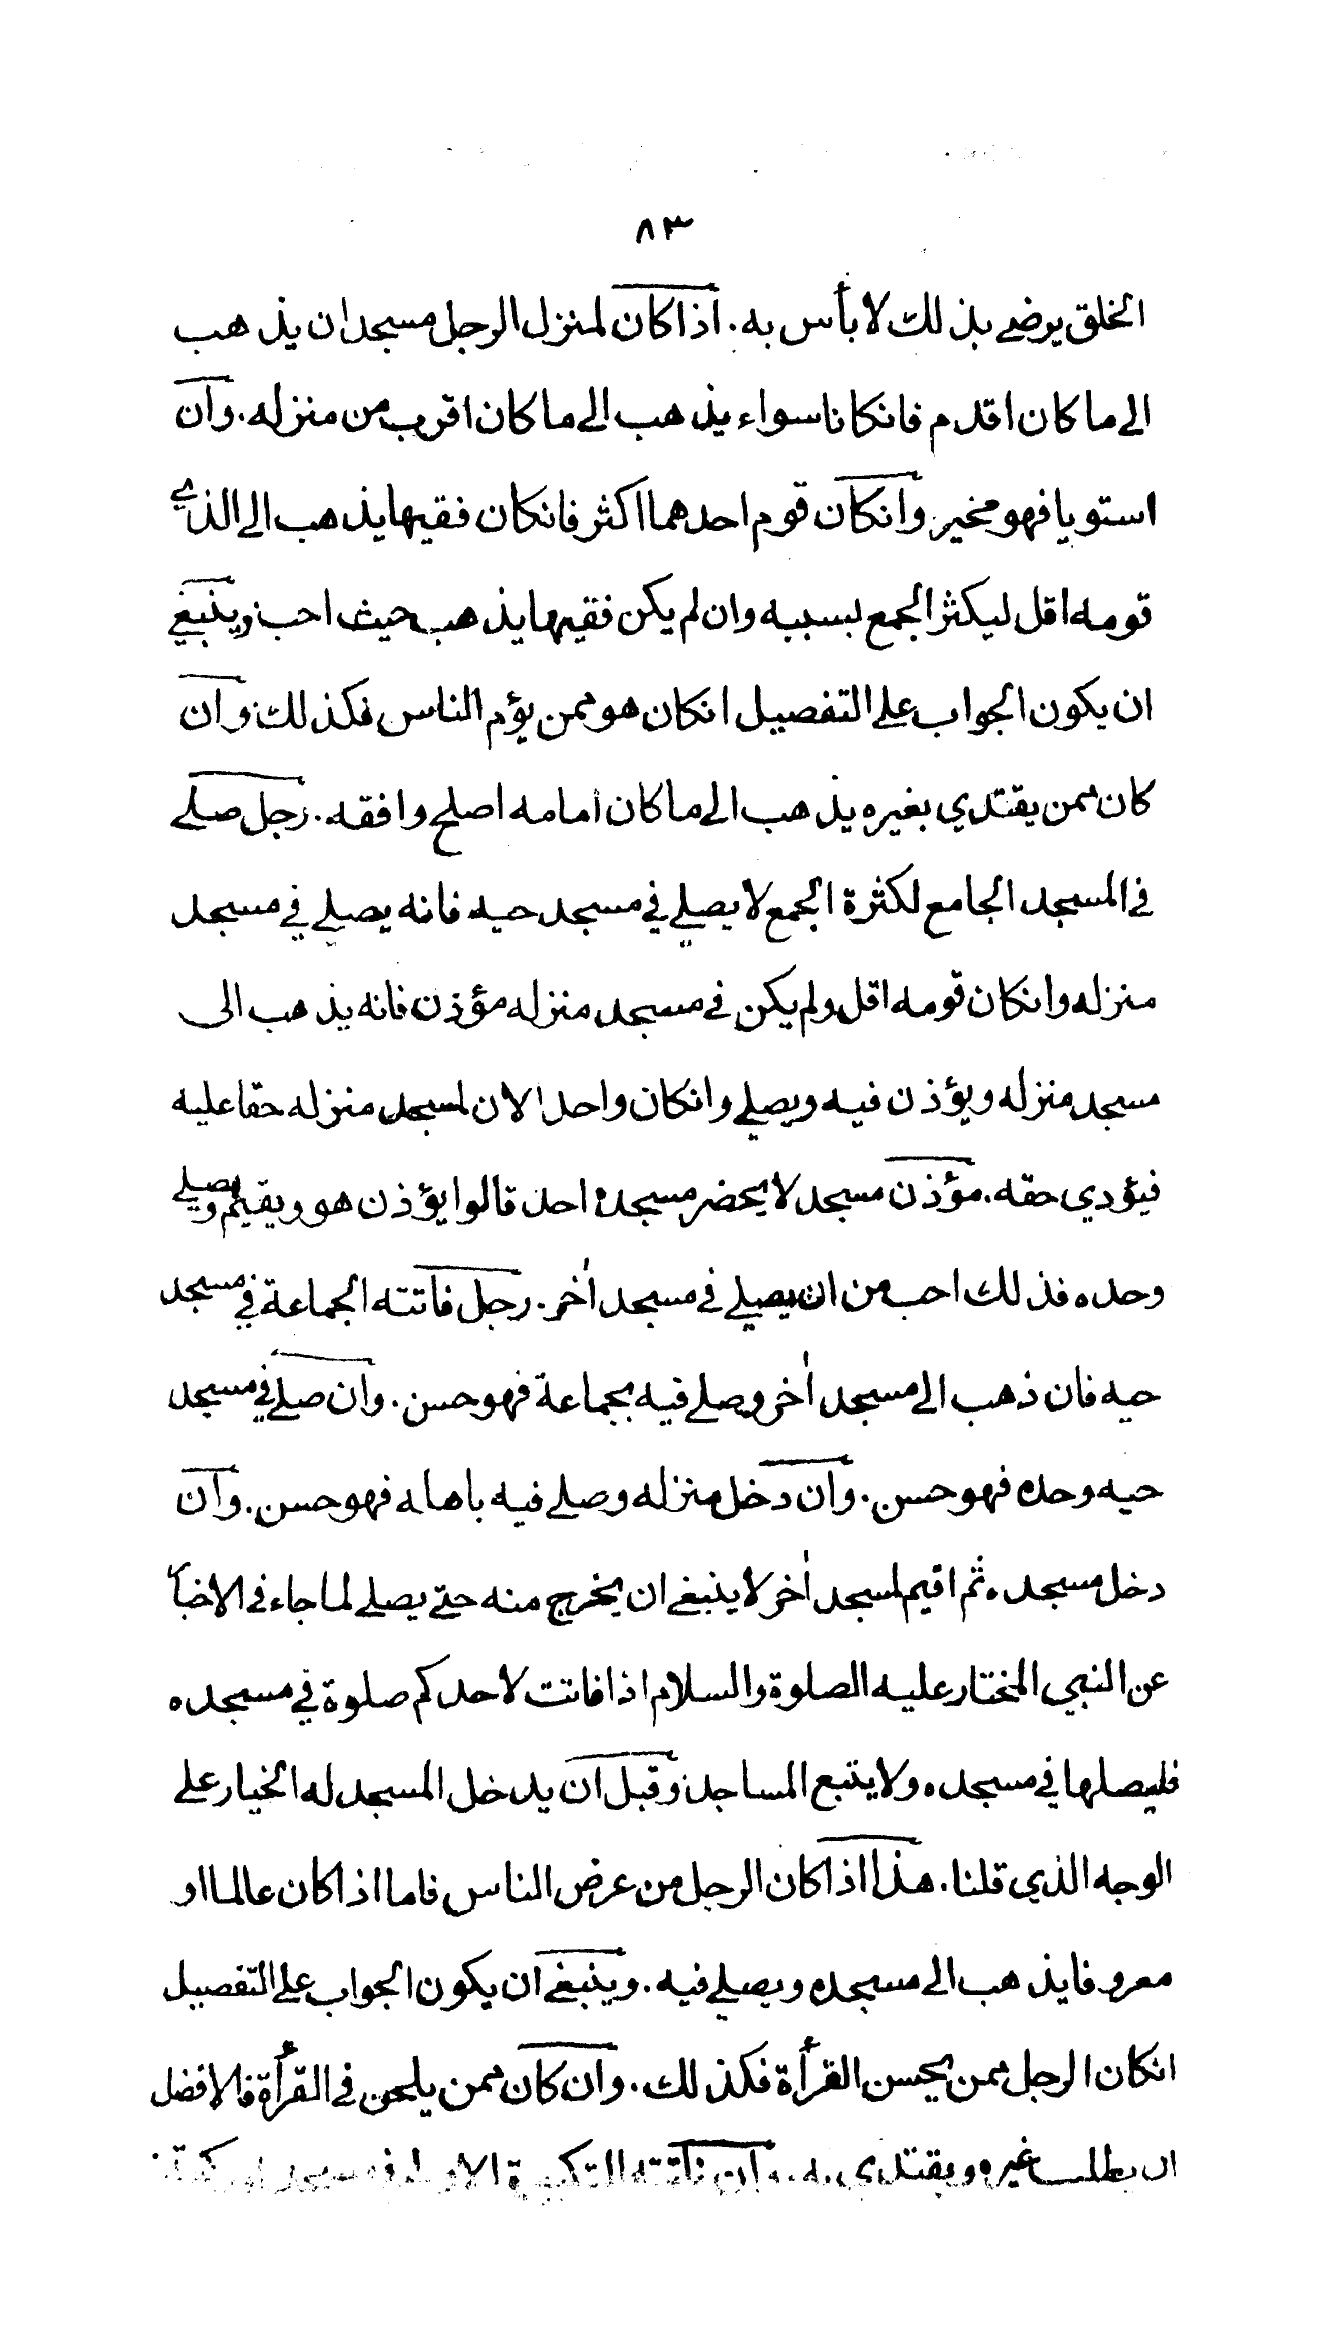 ٨٣
الخلق يرضى بذلك لا بأس به. اذا كان لمنزل الرجل مسجدان يذهب
الى ما كان اقدم فانكانا سواء يذهب الى ما كان اقرب من منزله. وان
استويا فهو مخير. وانكان قوم احدهما اكثر فانكان فقيها يذهب الى الذي
قومه اقل ليكثر الجمع بسببه وان لم يكن فقيها يذهب حيث احب. وينبغي
ان يكون الجواب على التفصيل انكان هو ممن يؤم الناس فكذلك. وان
كان ممن يقتدي بغيره يذهب الى ما كان امامه اصلح وافقه. رجل صلى
في المسجد الجامع لكثرة الجمع لا يصلي في مسجد حيه فانه يصلي في مسجد
منزله وانكان قومه اقل ولم يكن في مسجد منزله مؤذن فانه يذهب الى
مسجد منزله ويؤذن فيه ويصلي وانكان واحدا لان لمسجد منزله حقا عليه
فيؤدي حقه. مؤذن مسجد لا يحضر مسجده احد قالوا يؤذن هو ويقيم ويصلي
وحده فذلك احب من ان يصلي في مسجد أخر. رجل فاتته الجماعة في مسجد
حيه فان ذهب الى مسجد أخر وصلى فيه بجماعة فهو حسن. وان صلى في مسجد
حيه وحده فهو حسن. وان دخل منزله وصلى فيه باهله فهو حسن. وان
دخل مسجده ثم اقيم لمسجد أخر لا ينبغي ان يخرج منه حتى يصلي لما جاء في الاخبار
عن النبي المختار عليه الصلوة والسلام اذا فاتت لاحدكم صلوة في مسجده
فليصلها في مسجده ولا يتبع المساجد. وقبل ان يدخل المسجد له الخيار على
الوجه الذي قلنا. هذا اذا كان الرجل من عرض الناس فاما اذا كان عالما او
معروفا يذهب الى مسجده ويصلي فيه. وينبغي ان يكون الجواب على التفصيل
انكان الرجل ممن يحسن القرأة فكذلك. وان كان ممن يلحن في القرأة فالافضل
ان يطلب غيره ويقتدي به. وان فاتته التكبيرة الاولى في مسجد